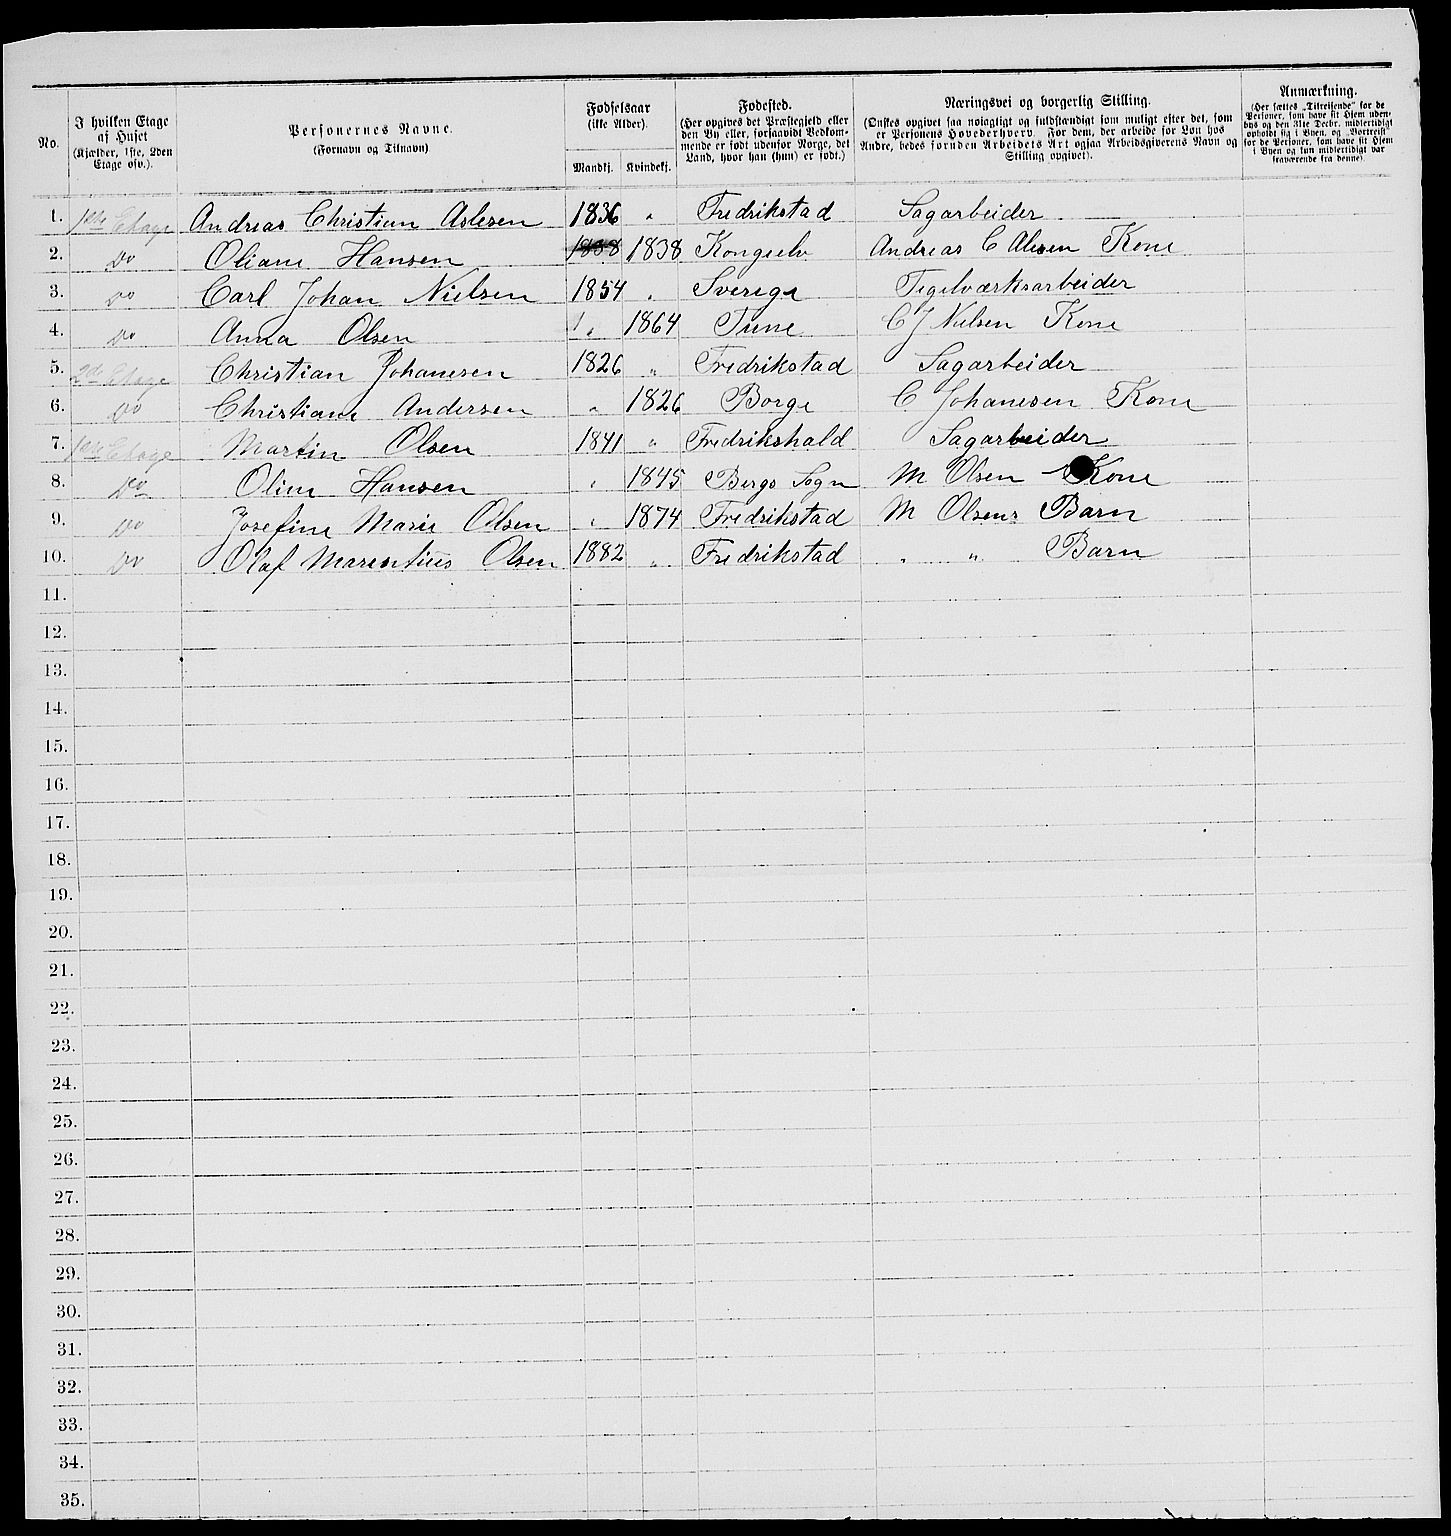 No.
I hvilken Etage
af Huset
(Kjælder, 1ste, 2den
Etage osv.).
Personernes Navne.
(Fornavn og Tilnavn)
Fødselsaar
(ikke Alder).
Mandkj. Kvindekj.
Fødested.
(Her opgives det Præstegjeld eller
den By eller, forsaavidt Vedkom-
mende er født udenfor Norge, det
Land, hvor han (hun) er født.)
Næringsvei og borgerlig Stilling.
(Ønskes opgivet saa nøiagtigt og fuldstændigt som muligt efter det, som
er Personens Hovederhverv. For dem, der arbeide for Løn hos
Andre, bedes foruden Arbeidets Art ogsaa Arbeidsgiverens Navn og
Stilling opgivet).
Anmærkning.
(Her sættes „Tilreisende" for de
Personer, som have sit Hjem uden-
bys og den 31te Decbr. midlertidigt
opholdt sig i Byen, og „Bortreist"
for de Personer, som have sit Hjem
i Byen og kun midlertidigt var
fraværende fra denne).
1. 1ste Etage Andreas Christian Aslesen 1836 " Fredrikstad Sagarbeider
2. do Oliane Hansen 1838 1838 Kongelv Andreas C Alesen Kone
3. do Carl Johan Nielsen 1854 " Sverige Tegelværksarbeider
4. do Anna Olsen " 1864 Tune C J Nielsen Kone
5. 2de Etage Christian Johanesen 1826 " Fredrikstad Sagarbeider
6. do Christiane Andersen " 1826 Borge C Johanesen Kone
7. 1ste Etage Martin Olsen 1841 " Fredrikshald Sagarbeider
8. do Oline Hansen " 1845 Bergs Sogn M Olsen Kone
9. do Josefine Marie Olsen " 1874 Fredrikstad M Olsens Barn
10. do Olaf Marentius Olsen 1882 " Fredrikstad " " Barn
11.
12.
13.
14.
15.
16.
17.
18.
19.
20.
21.
22.
23.
24.
25.
26.
27.
28.
29.
30.
31.
32.
33.
34.
35.